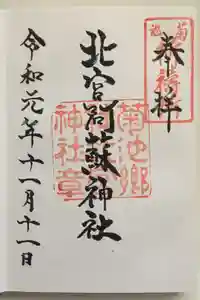 奉拝
北宮阿蘇神社
令和元年十一月十一日
菊池郷
神社章